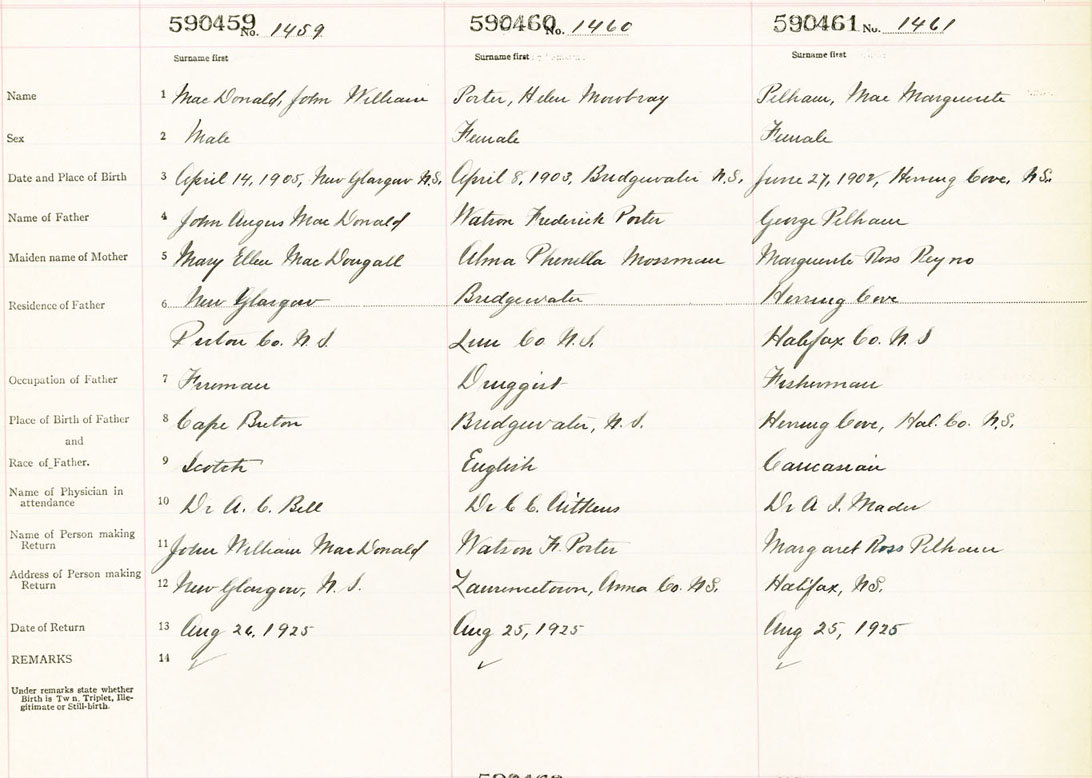 590459 No. 1459 590460 No. 1460 590461 No. 1461
Surname first Surname first Surname first
Name 1 MacDonald, John William Porter, Helen Mowbray Pelham, Mae Marguerite
Sex 2 Male Female Female
Date and Place of Birth 3 April 14, 1905, New Glasgow N.S. April 8, 1903, Bridgewater N.S. June 27, 1902, Herring Cove, N.S.
Name of Father 4 John Angus MacDonald Watson Frederick Porter George Pelham
Maiden name of Mother 5 Mary Ellen MacDougall Alma Phenella Mossman Marguerite Ross Reyno
Residence of Father 6 New Glasgow Bridgewater Herring Cove
Pictou Co. N.S. Lun Co N.S. Halifax Co. N.S
Occupation of Father 7 Fireman Druggist Fisherman
Place of Birth of Father 8 Cape Breton Bridgewater, N.S. Herring Cove, Hal. Co. N.S.
and
Race of Father. 9 Scotch English Caucasian
Name of Physician in
attendance 10 Dr A. C. Bell Dr C C. Aitkens Dr A I. Mader
Name of Person making
Return 11 John William MacDonald Watson F. Porter Margaret Ross Pelham
Address of Person making
Return 12 New Glasgow, N.S. Lawrencetown, Anna Co. N.S. Halifax, N.S.
Date of Return 13 Aug 26, 1925 Aug 25, 1925 Aug 25, 1925
REMARKS 14
Under remarks state whether
Birth is Tw n, Triplet, Ille-
gitimate or Still-birth.